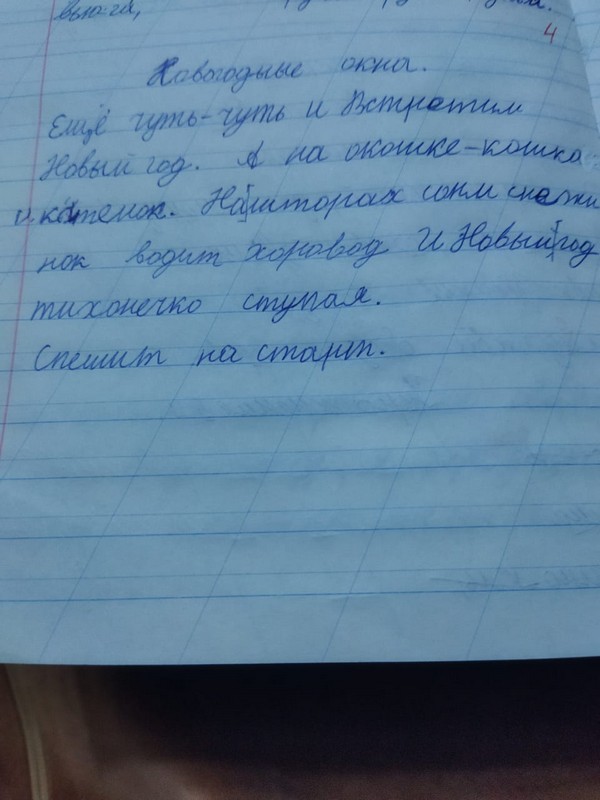 вьюга,
4
Новогодные окна.
Ещё чуть-чуть и Встретим
Новый год. А на окошке-кошка
и котенок. На шторах сонм снежи
нок водит хоровод И Новый год
тихонечко ступая.
Спешит на старт.